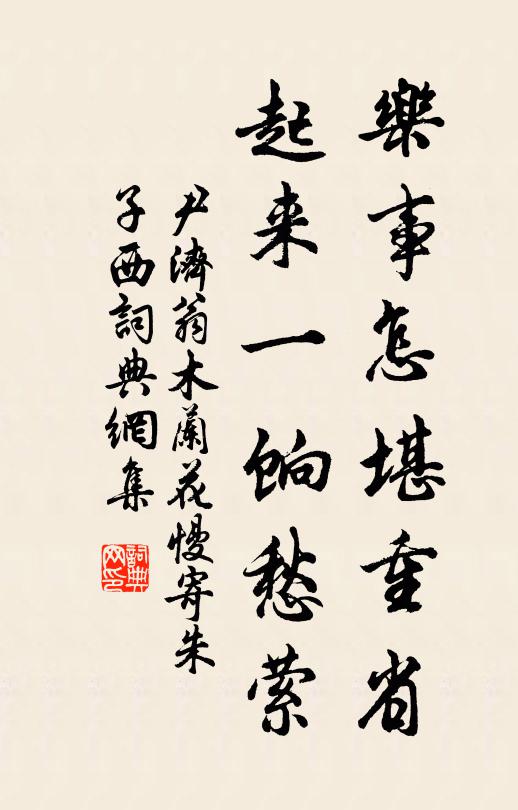 樂事怎堪重省
起来一餉愁萦
尹濟翁木蘭花慢寄朱
子西詞典網集
詞典網印